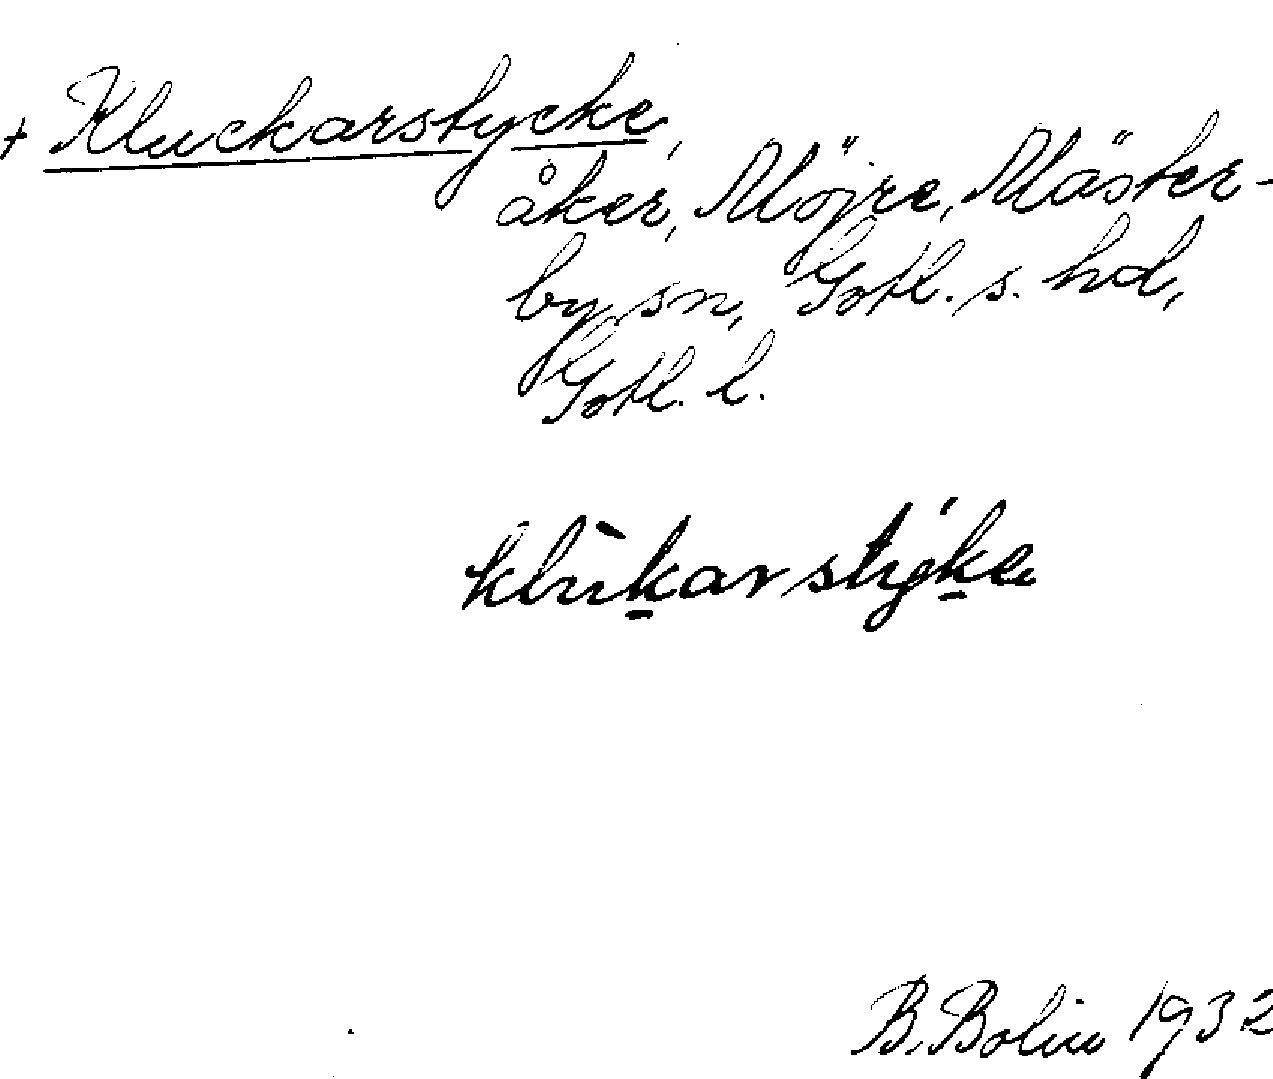 + Kluckarstycke,
åker, Möjre, Mäster-
by sn, Gotl. s. hd,
Gotl. l.
klùkarstýke
B. Bolin 1932